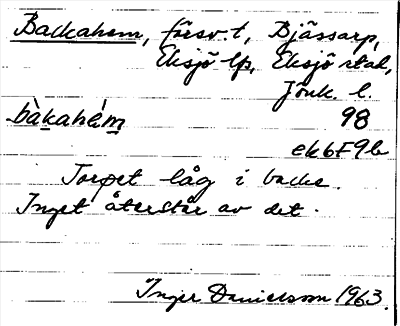 Backahem, försv. t, Bjässarp,
Eksjö lfs, Eksjö stad,
Jönk. l.
bàkahém 98
ek6F9b
Torpet låg i backe.
Inget återstår av det.
Inger Danielsson 1963.